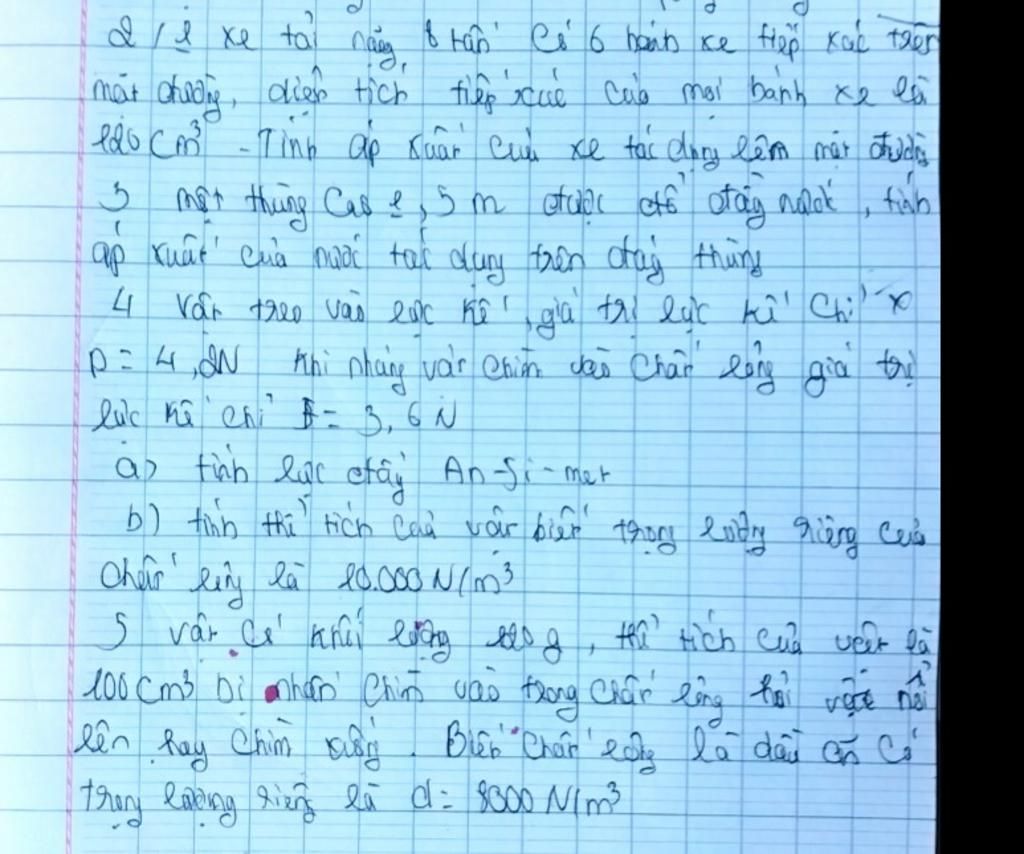 2/ 1 xe tải nặng 8 tấn Có 6 bánh xe tiếp xúc trên
mặt đường, diện tích tiếp xúc của mỗi bánh xe là
120 Cm³ - Tính áp xuất của xe tác dụng lên mặt đường
3 một thùng Cao 1,5 m được đổ đầy nước, tính
áp xuất của nước tác dụng trên đáy thùng
4 vật treo vào lực kế, giá trị lực kế Chỉ
P = 4,2N Khi nhúng vật chìm vào Chất lỏng giá trị
lực kế chỉ = 3,6 N
a) tính lực đẩy An-Si-met
b) tính thể tích của vật biết trọng lượng riêng của
Chất lỏng là 10.000 N/m³
5 vật Có khối lượng 120 g, thể tích của vật là
100 Cm³ bị nhấn Chìm vào trong chất lỏng hỏi vật nổi
lên hay Chìm xuống. Biết chất lỏng là dầu ăn Có
trọng lượng riêng là d = 8000 N/m³